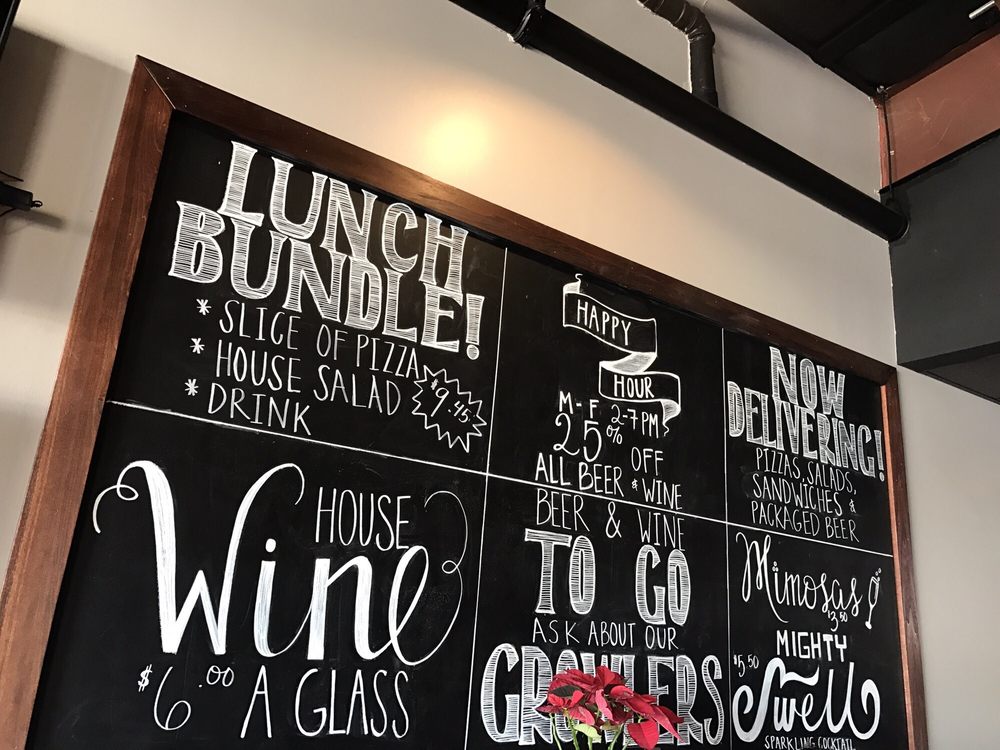 LUNCH
BUNDLE!
* SLICE OF PIZZA
* HOUSE SALAD
* DRINK
$9.45
HAPPY
HOUR
M-F 2-7 PM
25% OFF
ALL BEER & WINE
NOW
DELIVERING!
PIZZAS, SALADS,
SANDWICHES &
PACKAGED BEER
HOUSE
Wine
$6.00 A GLASS
BEER & WINE
TO GO
ASK ABOUT OUR
GROWLERS
Mimosas
$3.50
MIGHTY
$5.50
Swell
SPARKLING COCKTAIL